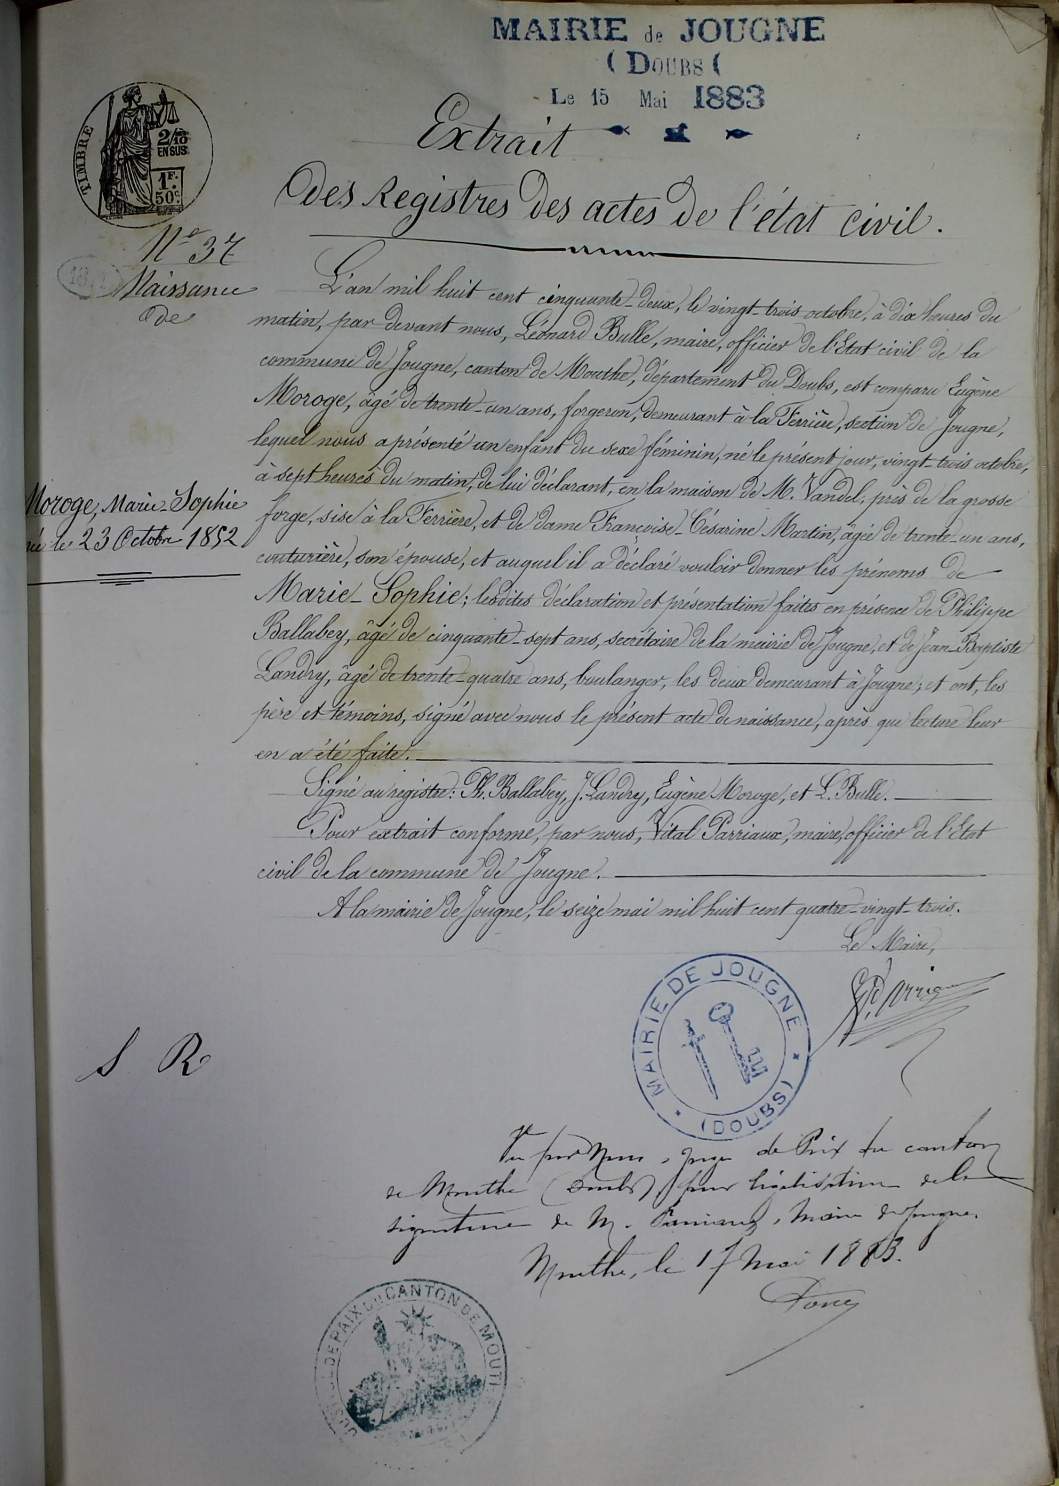 MAIRIE de JOUGNE
( DOUBS (
Le 15 Mai 1883
TIMBRE
2/10
EN SUS
1F.
50c.
Extrait
des Registres des actes de l'état civil.
No 37
Naissance
de
Moroge, Marie-Sophie
née le 23 Octobre 1852
L'an mil huit cent cinquante-deux, le vingt-trois octobre, à dix heures du
matin, par devant nous, Léonard Bulle, maire, officier de l'Etat civil de la
commune de Jougne, canton de Mouthe, département du Doubs, est comparu Eugène
Moroge, âgé de trente-un ans, forgeron, demeurant à la Ferrière, section de Jougne,
lequel nous a présenté un enfant du sexe féminin, né le présent jour, vingt-trois octobre,
à sept heures du matin, de lui déclarant, en la maison de M. Vandel, près de la grosse
forge, sise à la Ferrière, et de dame Françoise-Césarine Martin, âgée de trente-un ans,
couturière, son épouse, et auquel il a déclaré vouloir donner les prénoms de
Marie-Sophie; lesdites déclaration et présentation faites en présence de Philippe
Ballabey, âgé de cinquante-sept ans, secrétaire de la mairie de Jougne, et de Jean-Baptiste
Landry, âgé de trente-quatre ans, boulanger, les deux demeurant à Jougne; et ont, les
père et témoins, signé avec nous le présent acte de naissance, après que lecture leur
en a été faite.
Signé au registre: Ph. Ballabey, J. Landry, Eugène Moroge, et L. Bulle.
Pour extrait conforme, par nous, Vital Parriaux, maire, officier de l'Etat
civil de la commune de Jougne.
A la mairie de Jougne, le seize mai mil huit cent quatre-vingt-trois.
Le Maire,
MAIRIE DE JOUGNE
(DOUBS)
S R
Vu par Nous, Juge de Paix du canton
de Mouthe (Doubs) pour légalisation de la
signature de M. Parriaux, Maire de Jougne.
Mouthe, le 17 Mai 1883.
JUSTICE DE PAIX DU CANTON DE MOUTHE